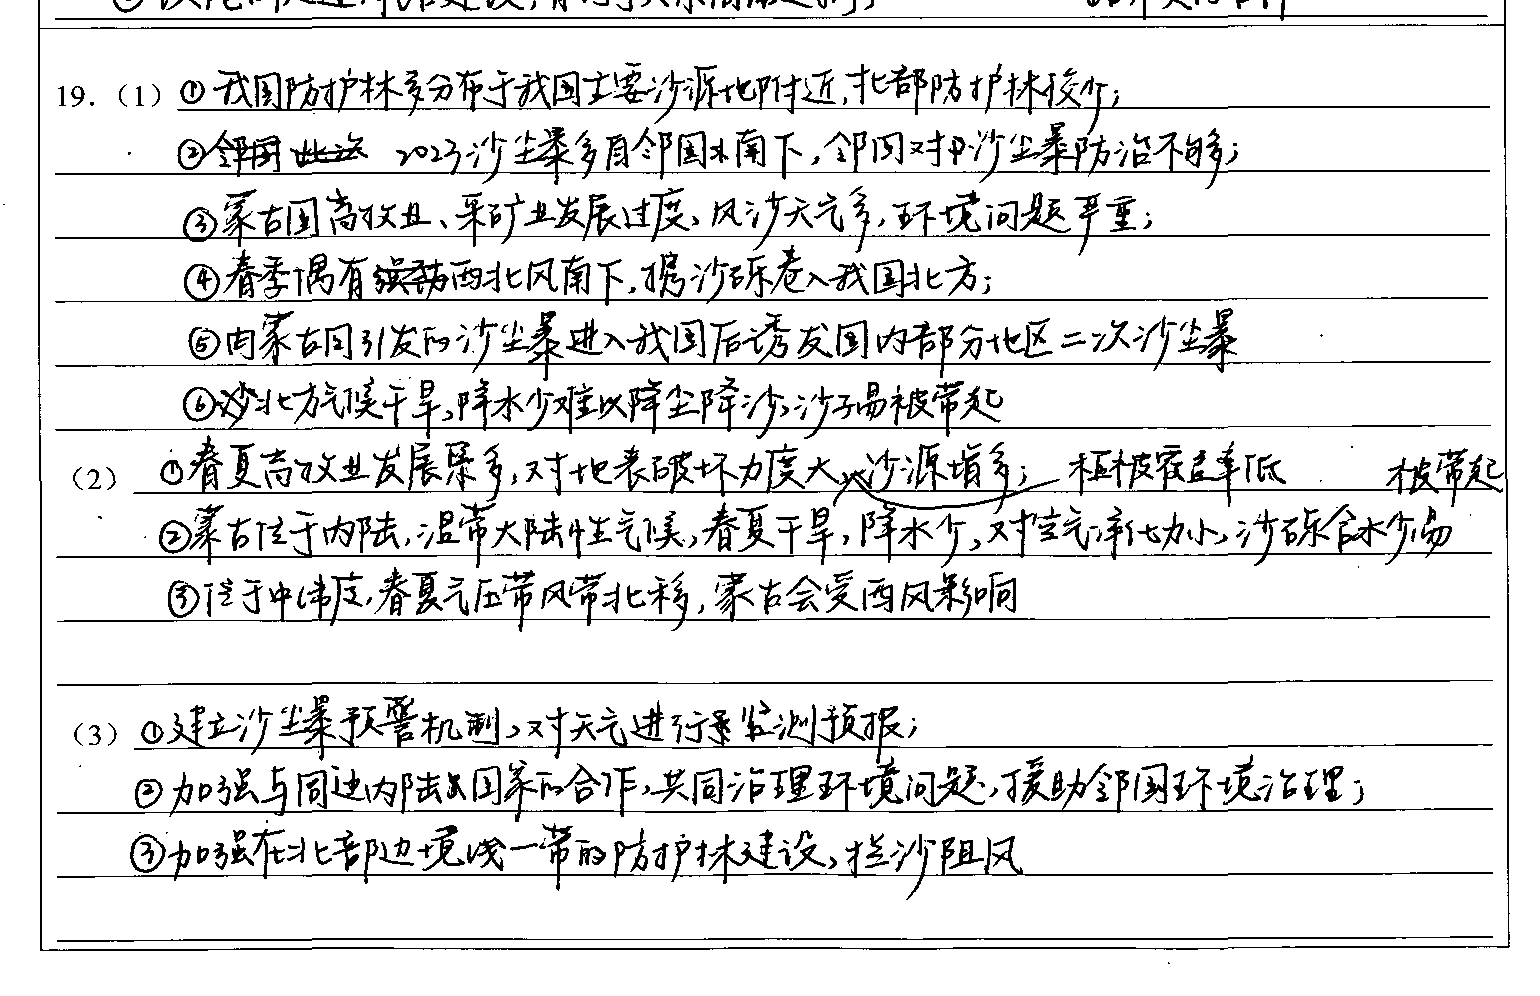 19.（1）①我国防护林多分布于我国主要沙源地附近,北部防护林较少;
② 2023沙尘暴多自邻国来南下,邻国对沙尘暴防治不够;
③蒙古国畜牧业、采矿业发展过度,风沙天气多,环境问题严重;
④春季偶有强劲西北风南下,携沙砾卷入我国北方;
⑤由蒙古国引发的沙尘暴进入我国后诱发国内部分地区二次沙尘暴
⑥北方气候干旱,降水少难以降尘降沙,沙子易被带起
（2）①春夏畜牧业发展果多,对地表破坏力度大,沙源增多; 植被覆盖率低
②蒙古位于内陆,温带大陆性气候,春夏干旱,降水少,对空气净化力小,沙砾含水少易被带起
③位于中纬度,春夏气压带风带北移,蒙古会受西风影响
（3）①建立沙尘暴预警机制,对天气进行监测预报;
②加强与周边内陆国家的合作,共同治理环境问题,援助邻国环境治理;
③加强在北部边境线一带的防护林建设,拦沙阻风